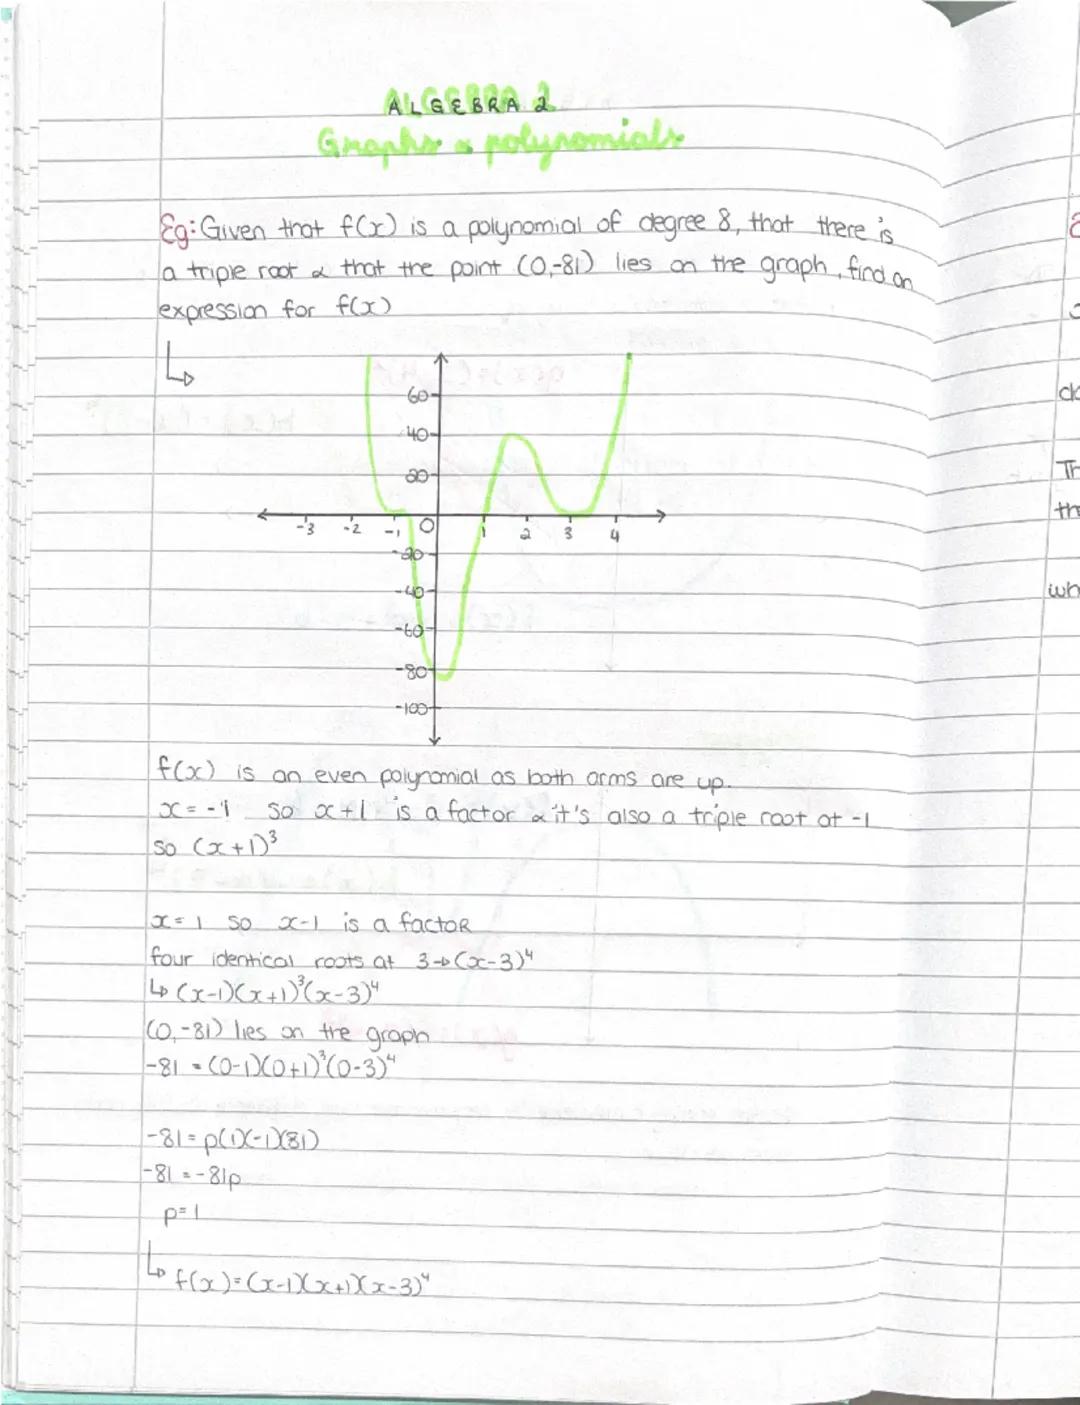 ALGEBRA 2
Graphs & polynomials
Eg: Given that f(x) is a polynomial of degree 8, that there is
a triple root & that the point (0,-81) lies on the graph, find an
expression for f(x)
60
40
20
-3 -2 -1 0 1 2 3 4
-20
-40
-60
-80
-100
f(x) is an even polynomial as both arms are up.
x = -1 so x+1 is a factor & it's also a triple root at -1
so (x+1)³
x = 1 so x-1 is a factor
four identical roots at 3→(x-3)⁴
↳ (x-1)(x+1)³(x-3)⁴
(0,-81) lies on the graph
-81 = (0-1)(0+1)³(0-3)⁴
-81 = p(1)(-1)(81)
-81 = -81p
p=1
↳ f(x)=(x-1)(x+1)(x-3)⁴
Th
the
wh